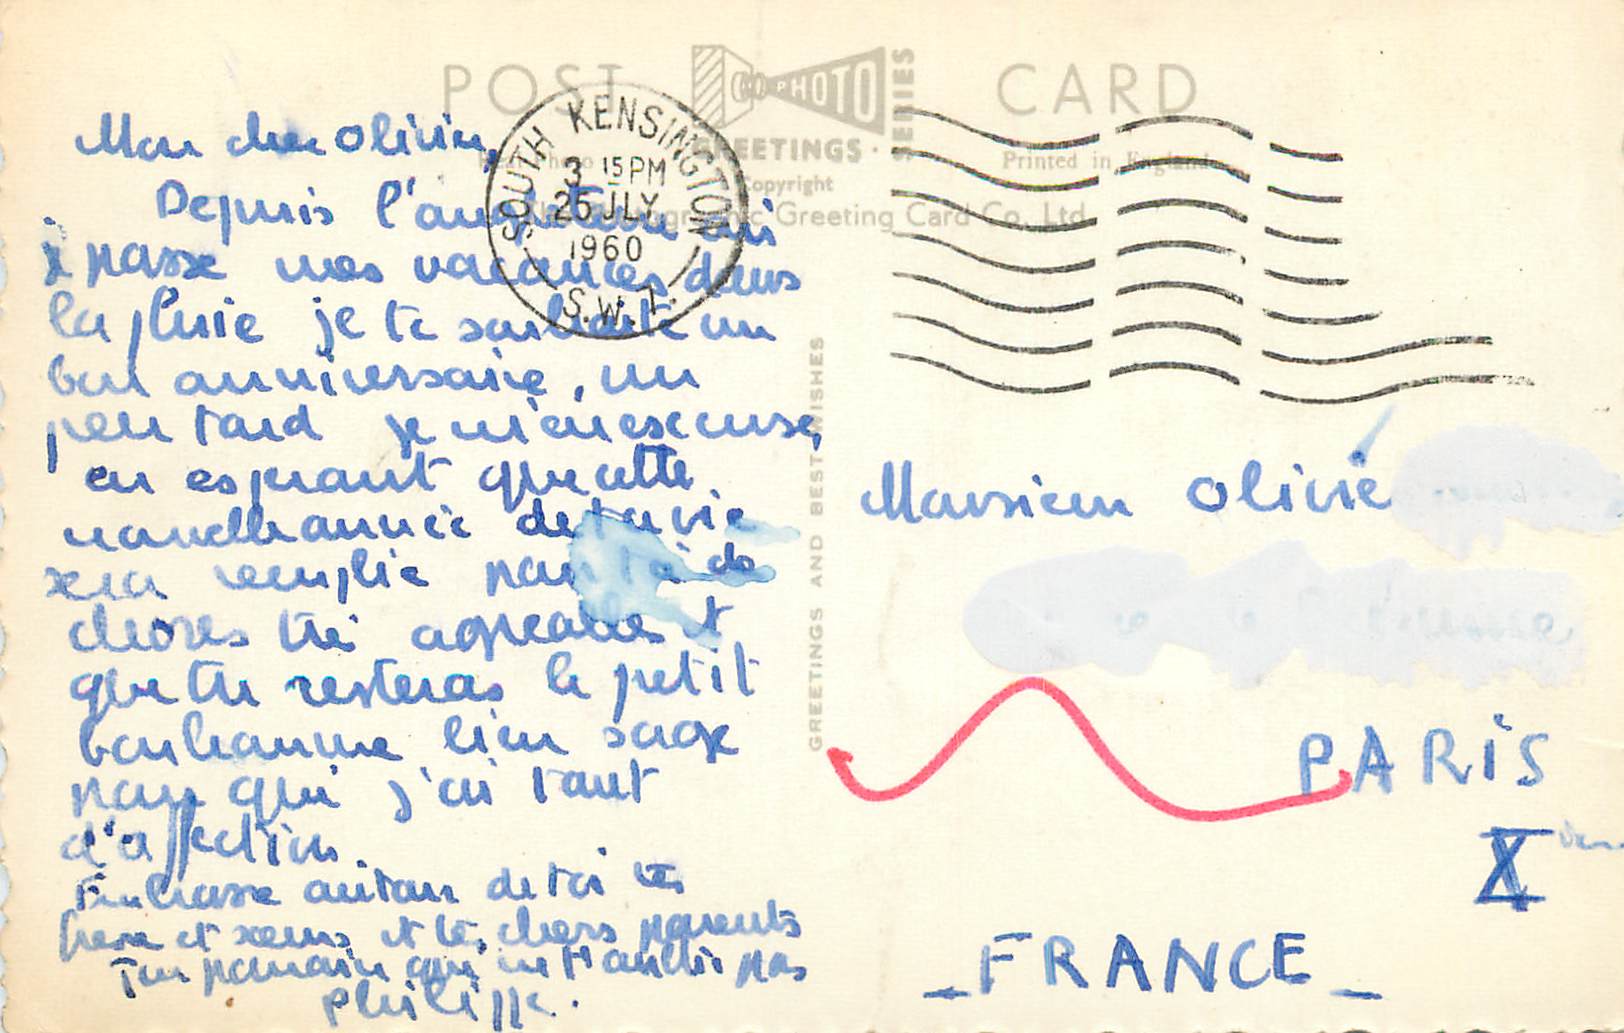 POST CARD
CO PHOTO
SERIES
GREETINGS
Real Photo
Printed in England
Copyright
Photographic Greeting Card Co. Ltd
GREETINGS AND BEST WISHES
SOUTH KENSINGTON
3 15 PM
25 JLY
1960
S.W.7.
Mon cher Olivier,
Depuis l'angleterre où
je passe mes vacances dans
la pluie je te souhaite un
bon anniversaire, un
peu tard je m'en excuse,
en esperant que cette
nouvelle année de ta vie
sera remplie pour toi de
choses très agreables et
que tu resteras le petit
bonhomme bien sage
pour qui j'ai tant
d'affection.
Embrasse autour de toi tes
frere et sœurs et tes chers parents
Ton parrain qui ne t'oublie pas
Philippe.
Monsieur Olivie
PARIS
X
_FRANCE_